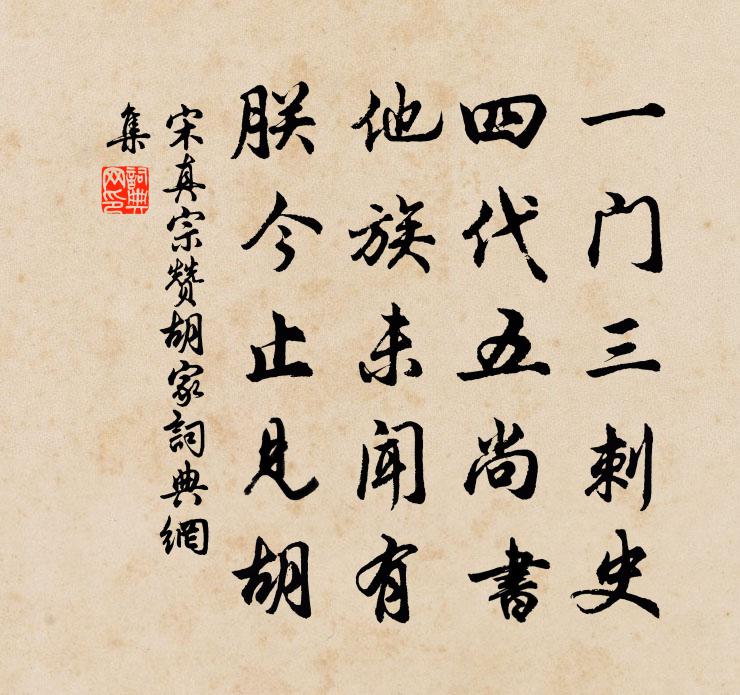 一门三刺史
四代五尚書
他族未闻有
朕今止見胡
宋真宗赞胡家詞典網
集
詞典網印